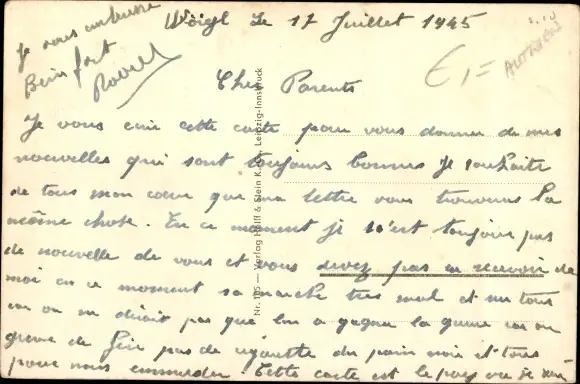 Wöigl Le 17 Juillet 1945
Je vous embrasse
Bien fort
Chers Parents
E 1=
Je vous ecris cette carte pour vous donner de mes
nouvelles qui sont toujours bonnes Je souhaite
de tous mon coeur que ma lettre vous trouvera la
même chose. En ce moment je n'est toujour pas
de nouvelle de vous et vous devez pas en recevoir de
moi en ce moment sa marche tres mal et sur tous
car on ne dirait pas que l'on a gagner la guerre car on
greve de faim pas de cigarette du pain noir et tous
pour nous emmerder Cette carte est le pays ou je
Nr. 195 — Verlag Hälff & Stein K.G. Leipzig-Innsbruck